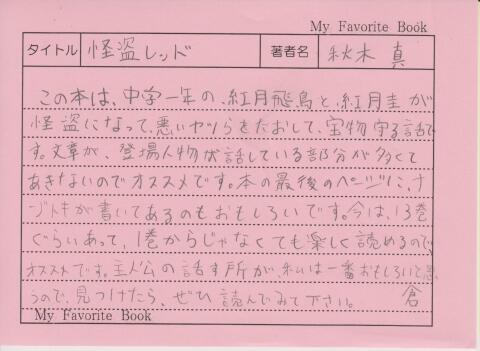 My Favorite Book
タイトル 怪盗レッド 著者名 秋木 真
この本は、中学一年の、紅月飛鳥と、紅月圭が
怪盗になって、悪いヤツらをたおして、宝物守る話で
す。文章が、登場人物が話している部分が多くて
あきないのでオススメです。本の最後のページに、ナ
ゾトキが書いてあるのもおもしろいです。今は、13巻
ぐらいあって、1巻からじゃなくても楽しく読めるので
オススメです。主人公の話す所が、私は一番おもしろいと思
うので、見つけたら、ぜひ読んでみて下さい。 倉
My Favorite Book